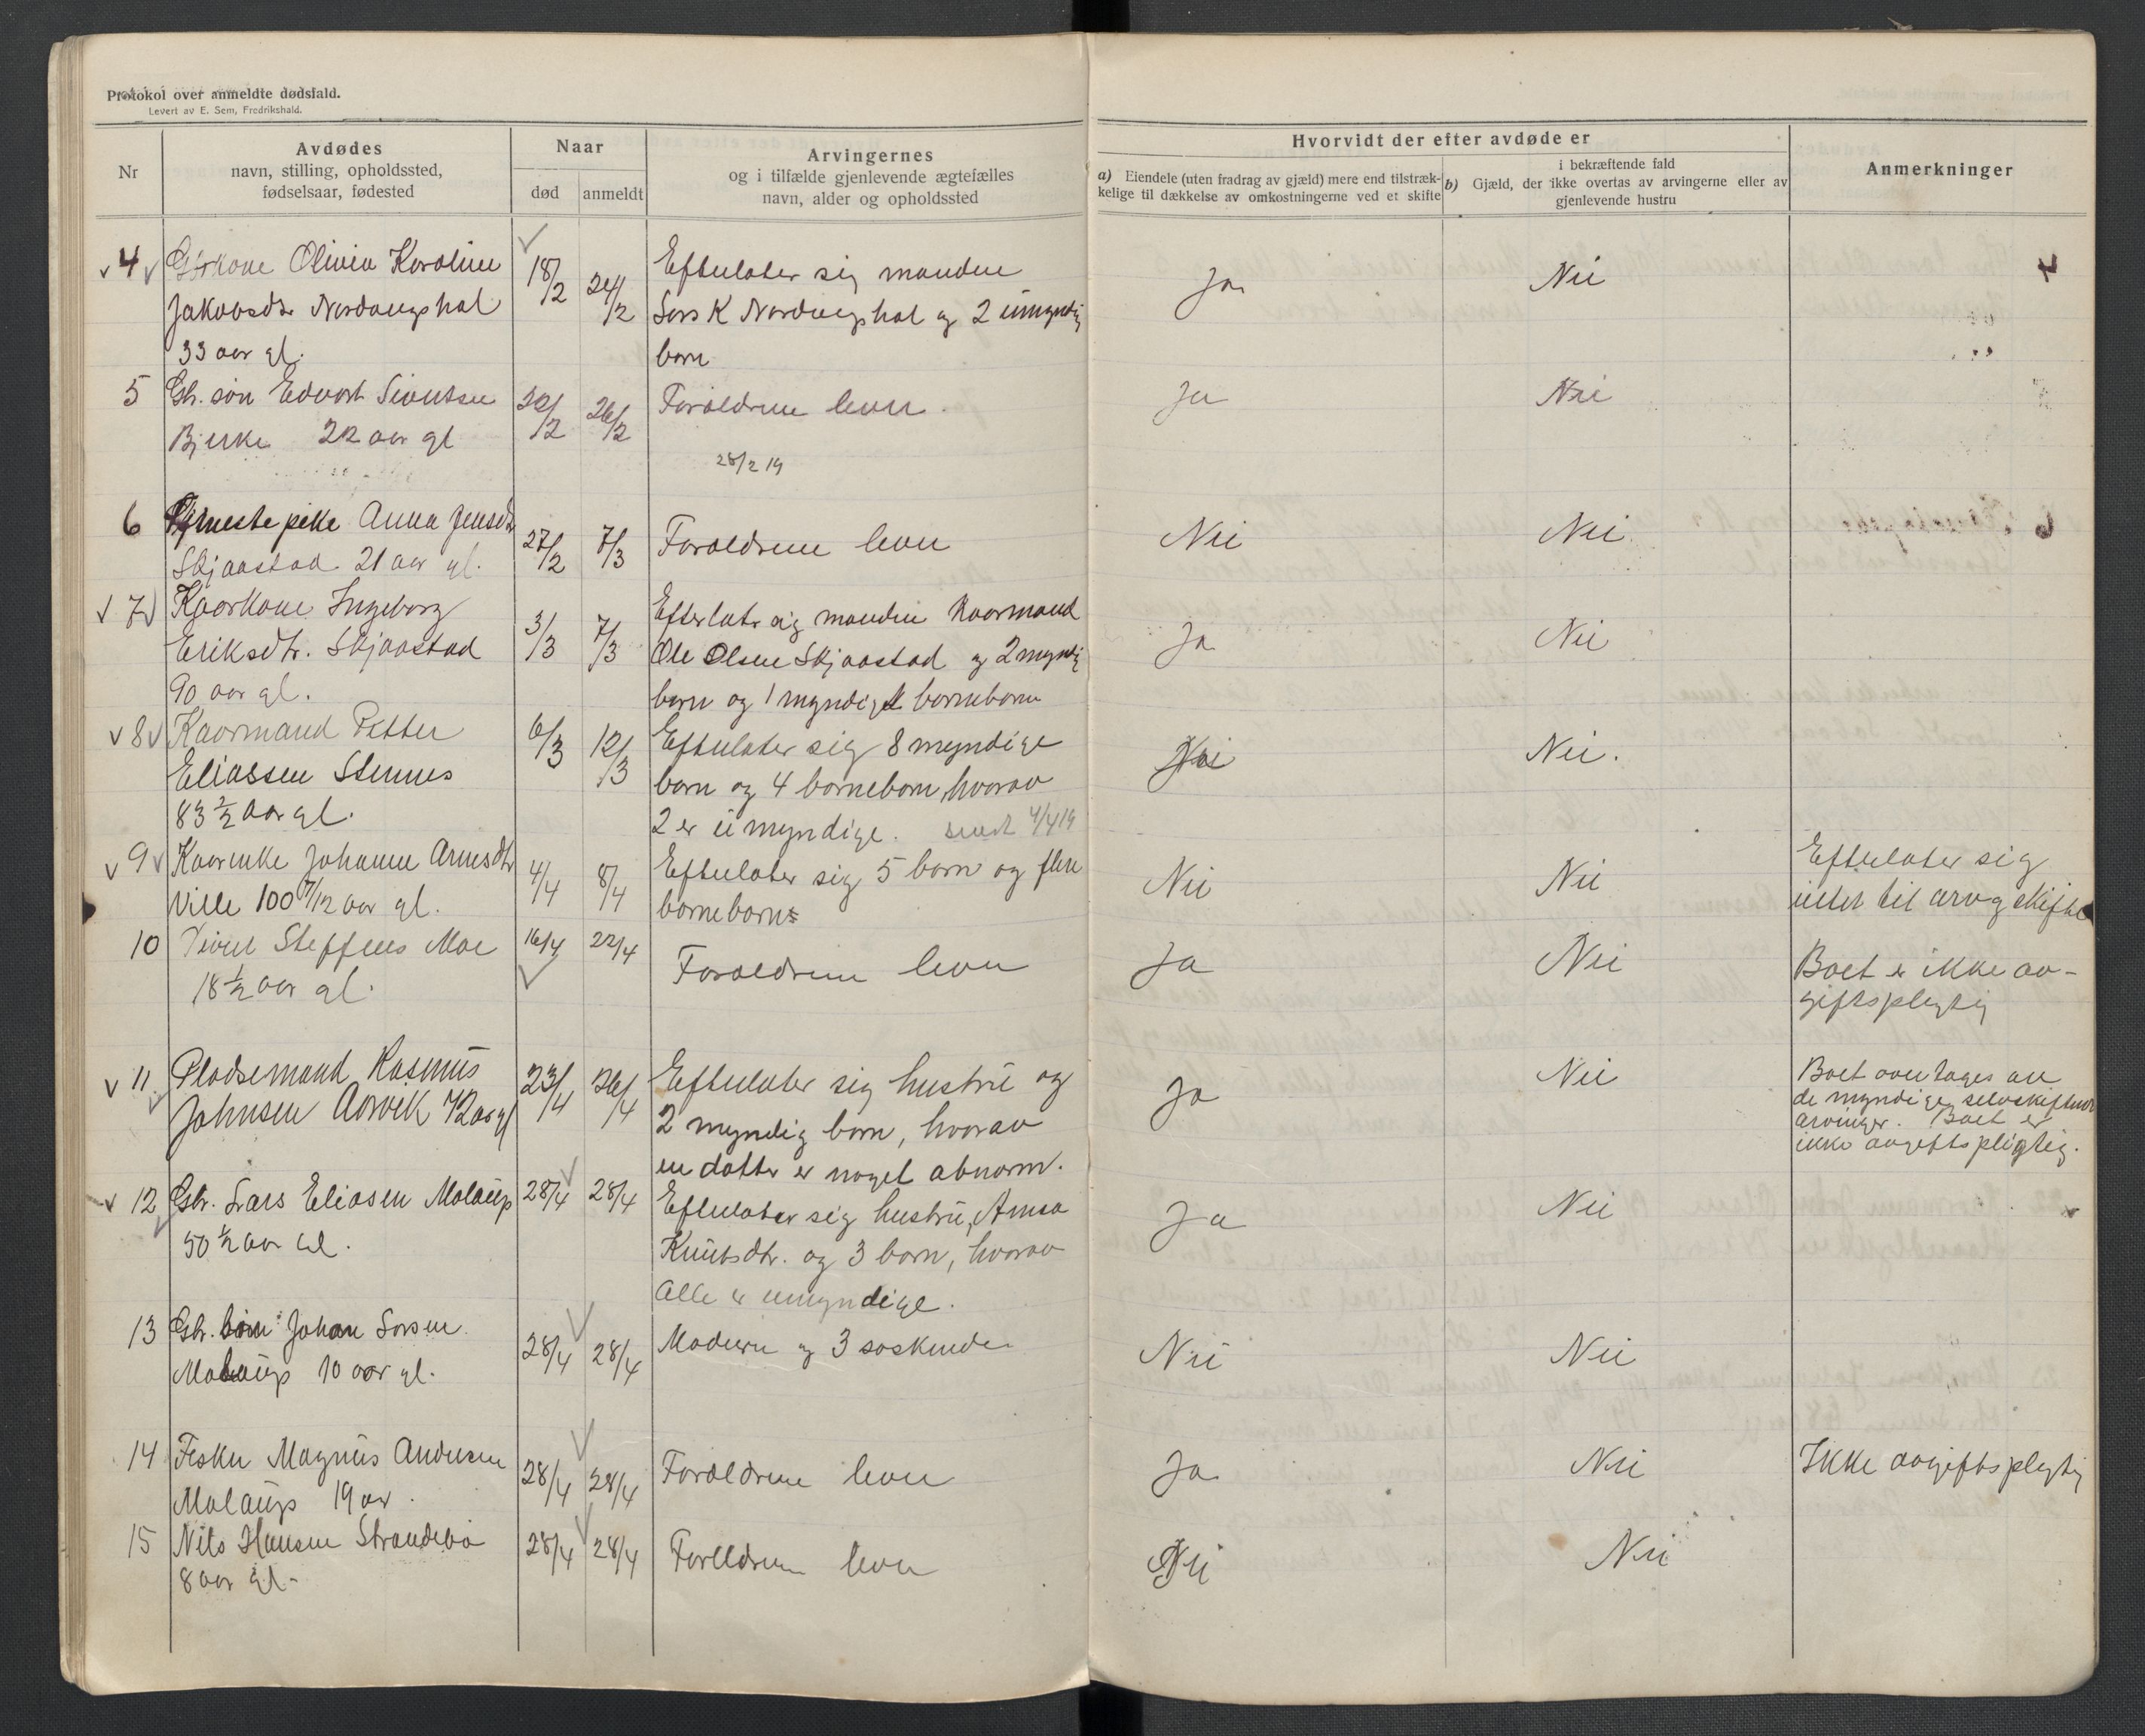 Protokol over anmeldte dødsfald.
Levert av E. Sem, Fredrikshald.
Nr
Avdødes
navn, stilling, opholdssted,
fødselsaar, fødested
Naar
død
anmeldt
Arvingernes
og i tilfælde gjenlevende ægtefælles
navn, alder og opholdssted
Hvorvidt der efter avdøde er
a) Eiendele (uten fradrag av gjæld) mere end tilstræk-
kelige til dækkelse av omkostningerne ved et skifte
i bekræftende fald
b) Gjæld, der ikke overtas av arvingerne eller av
gjenlevende hustru
Anmerkninger
4 Gbrkone Olivia Karoline 18/2 24/2 Efterlater sig manden Ja Nei
Jakobsdtr Nordangshol Lars K Nordangshol og 2 umyndig
33 aar gl. born
5 Gbr. søn Edvart Sivertsen 22/2 26/2 Foraldrene lever Ja Nei
Bjerke 22 aar gl
28/2 19
6 Tjeneste pike Anna Jensdtr 27/2 7/3 Foraldrene lever Nei Nei
Skjaastad 21 aar gl.
7 Kaarkone Ingeborg 3/3 7/3 Efterlatr sig manden Kaarmand Ja Nei
Eriksdtr. Skjaastad Ole Olsen Skjaastad og 2 myndig
90 aar gl. born og 1 myndigt borneborn
8 Kaarmand Petter 6/3 12/3 Efterlater sig 8 myndige Nei Nei.
Eliassen Stennes born og 4 borneborn, hvorav
83 1/2 aar gl. 2 er umyndige. sendt 4/4 19
9 Kaarenke Johanne Arnesdtr 4/4 8/4 Efterlater sig 5 born og flere Nei Nei Efterlater sig
Ville 100 7/12 aar gl. borneborn intet til arv og skifte
10 Steffens Moe 16/4 22/4 Foraldrene lever Ja Nei Boet er ikke av-
18 1/2 aar gl. giftspligtig
11 Pladsemand Rasmus 23/4 26/4 Efterlater sig hustru og Ja Nei Boet overtages av
Johnsen Aarvik 72 aar gl 2 myndig born, hvorav de myndige selvskiftende
en datter er noget abnorm. arvinger. Boet er
ikke avgiftspligtig.
12 Gbr. Lars Eliasen Molaup 28/4 28/4 Efterlater sig hustru, Anna Ja Nei
50 1/2 aar gl. Knutsdtr. og 3 born, hvorav
Alle er umyndige.
13 Gbr. søn Johan Larsen 28/4 28/4 Moderen og 3 søskende Nei Nei
Molaup 10 aar gl.
14 Fisker Magnus Andersen 28/4 28/4 Foraldrene lever Ja Nei Ikke avgiftspligtig
Molaup 19 aar.
15 Nils Hansen Strandebø 28/4 28/4 Forældrene lever Nei Nei
8 aar gl.